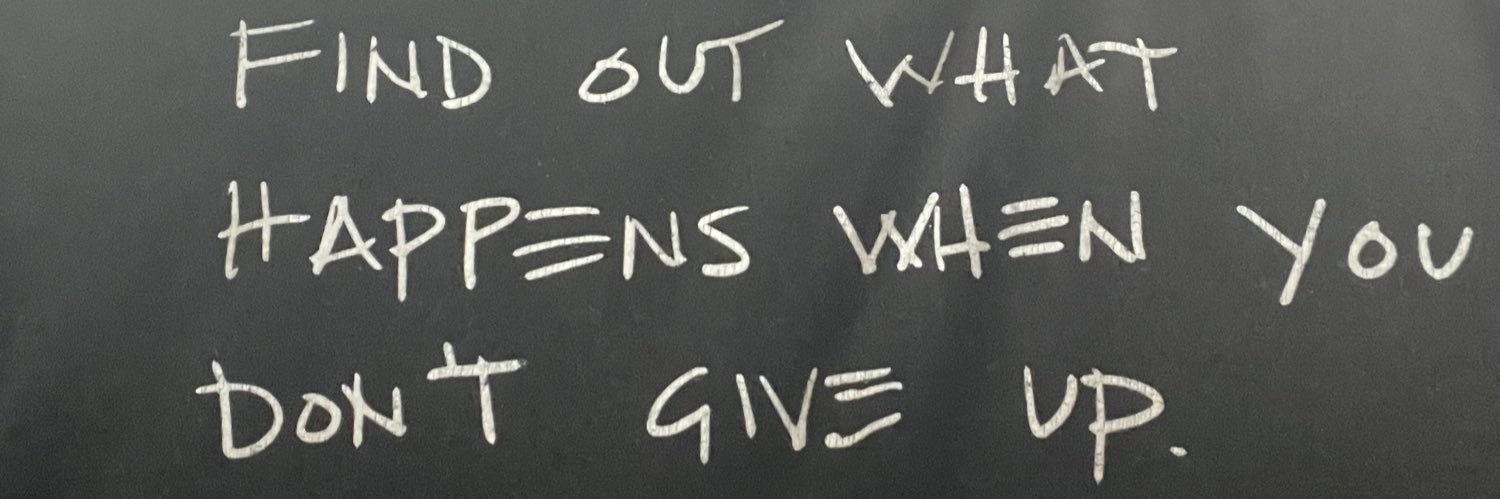 FIND OUT WHAT
HAPPENS WHEN YOU
DON'T GIVE UP.